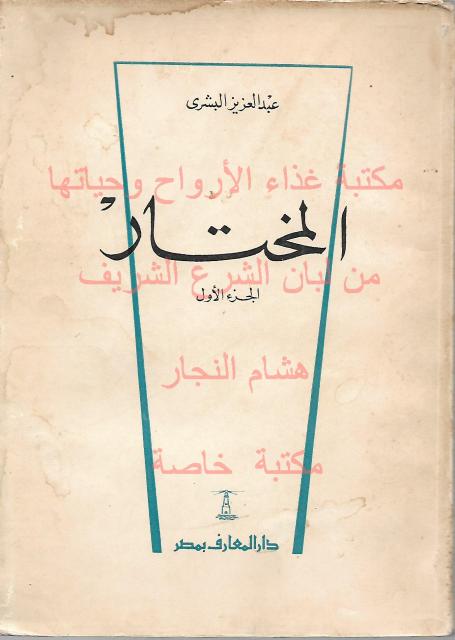 عبدالعزيز البشرى
مكتبة غذاء الأرواح وحياتها
المختار
من لبان الشرع الشريف
الجزء الأول
هشام النجار
مكتبة خاصة
دار المعارف بمصر